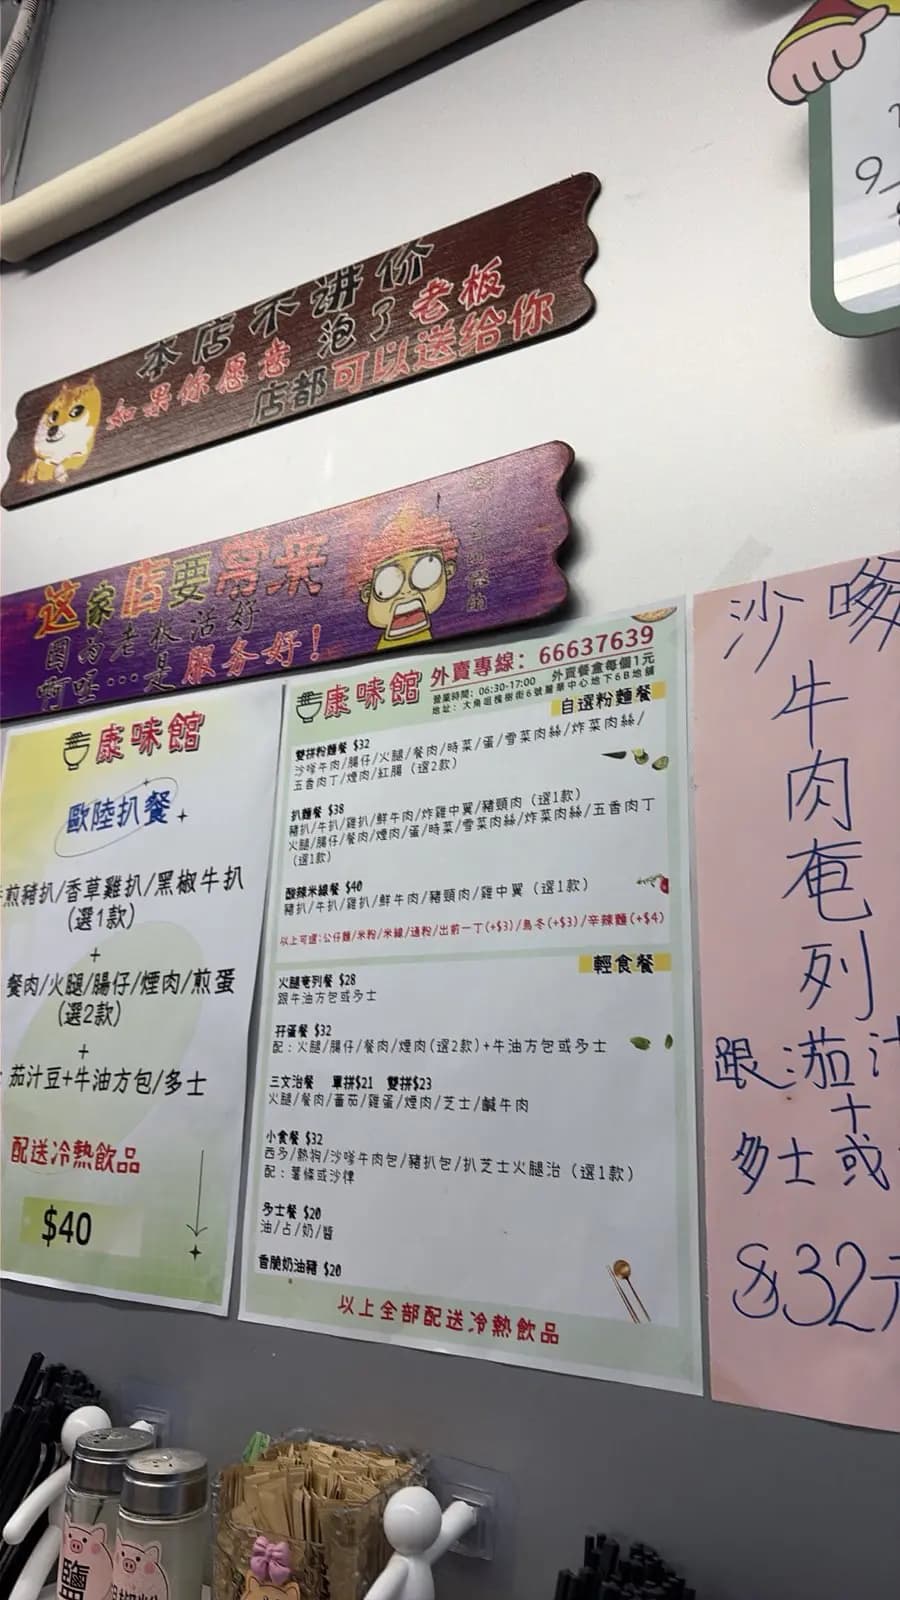 本店不讲价
如果你愿意 泡了老板
店都可以送给你
这家店要常来
因为老板活好
啊呸…是服务好！
康味館
歐陸扒餐
煎豬扒/香草雞扒/黑椒牛扒
(選1款)
+
餐肉/火腿/腸仔/煙肉/煎蛋
(選2款)
+
茄汁豆+牛油方包/多士
配送冷熱飲品
$40
康味館
外賣專線：66637639
營業時間：06:30-17:00 外賣餐盒每個1元
地址：大角咀槐樹街6號麗華中心地下6B地舖
自選粉麵餐
雙拼粉麵餐 $32
沙嗲牛肉/腸仔/火腿/餐肉/時菜/蛋/雪菜肉絲/炸菜肉絲/
五香肉丁/煙肉/紅腸（選2款）
扒麵餐 $38
豬扒/牛扒/雞扒/鮮牛肉/炸雞中翼/豬頸肉（選1款）
火腿/腸仔/餐肉/煙肉/蛋/時菜/雪菜肉絲/炸菜肉絲/五香肉丁
（選1款）
酸辣米線餐 $40
豬扒/牛扒/雞扒/鮮牛肉/豬頸肉/雞中翼（選1款）
以上可選:公仔麵/米粉/米線/通粉/出前一丁(+$3)/烏冬(+$3)/辛辣麵(+$4)
輕食餐
火腿奄列餐 $28
跟牛油方包或多士
孖蛋餐 $32
配：火腿/腸仔/餐肉/煙肉(選2款)+牛油方包或多士
三文治餐 單拼$21 雙拼$23
火腿/餐肉/蕃茄/雞蛋/煙肉/芝士/鹹牛肉
小食餐 $32
西多/熱狗/沙嗲牛肉包/豬扒包/扒芝士火腿治（選1款）
配：薯條或沙律
多士餐 $20
油/占/奶/醬
香脆奶油豬 $20
以上全部配送冷熱飲品
沙嗲
牛
肉
奄
列
跟茄汁
+
多士或
$32元
鹽